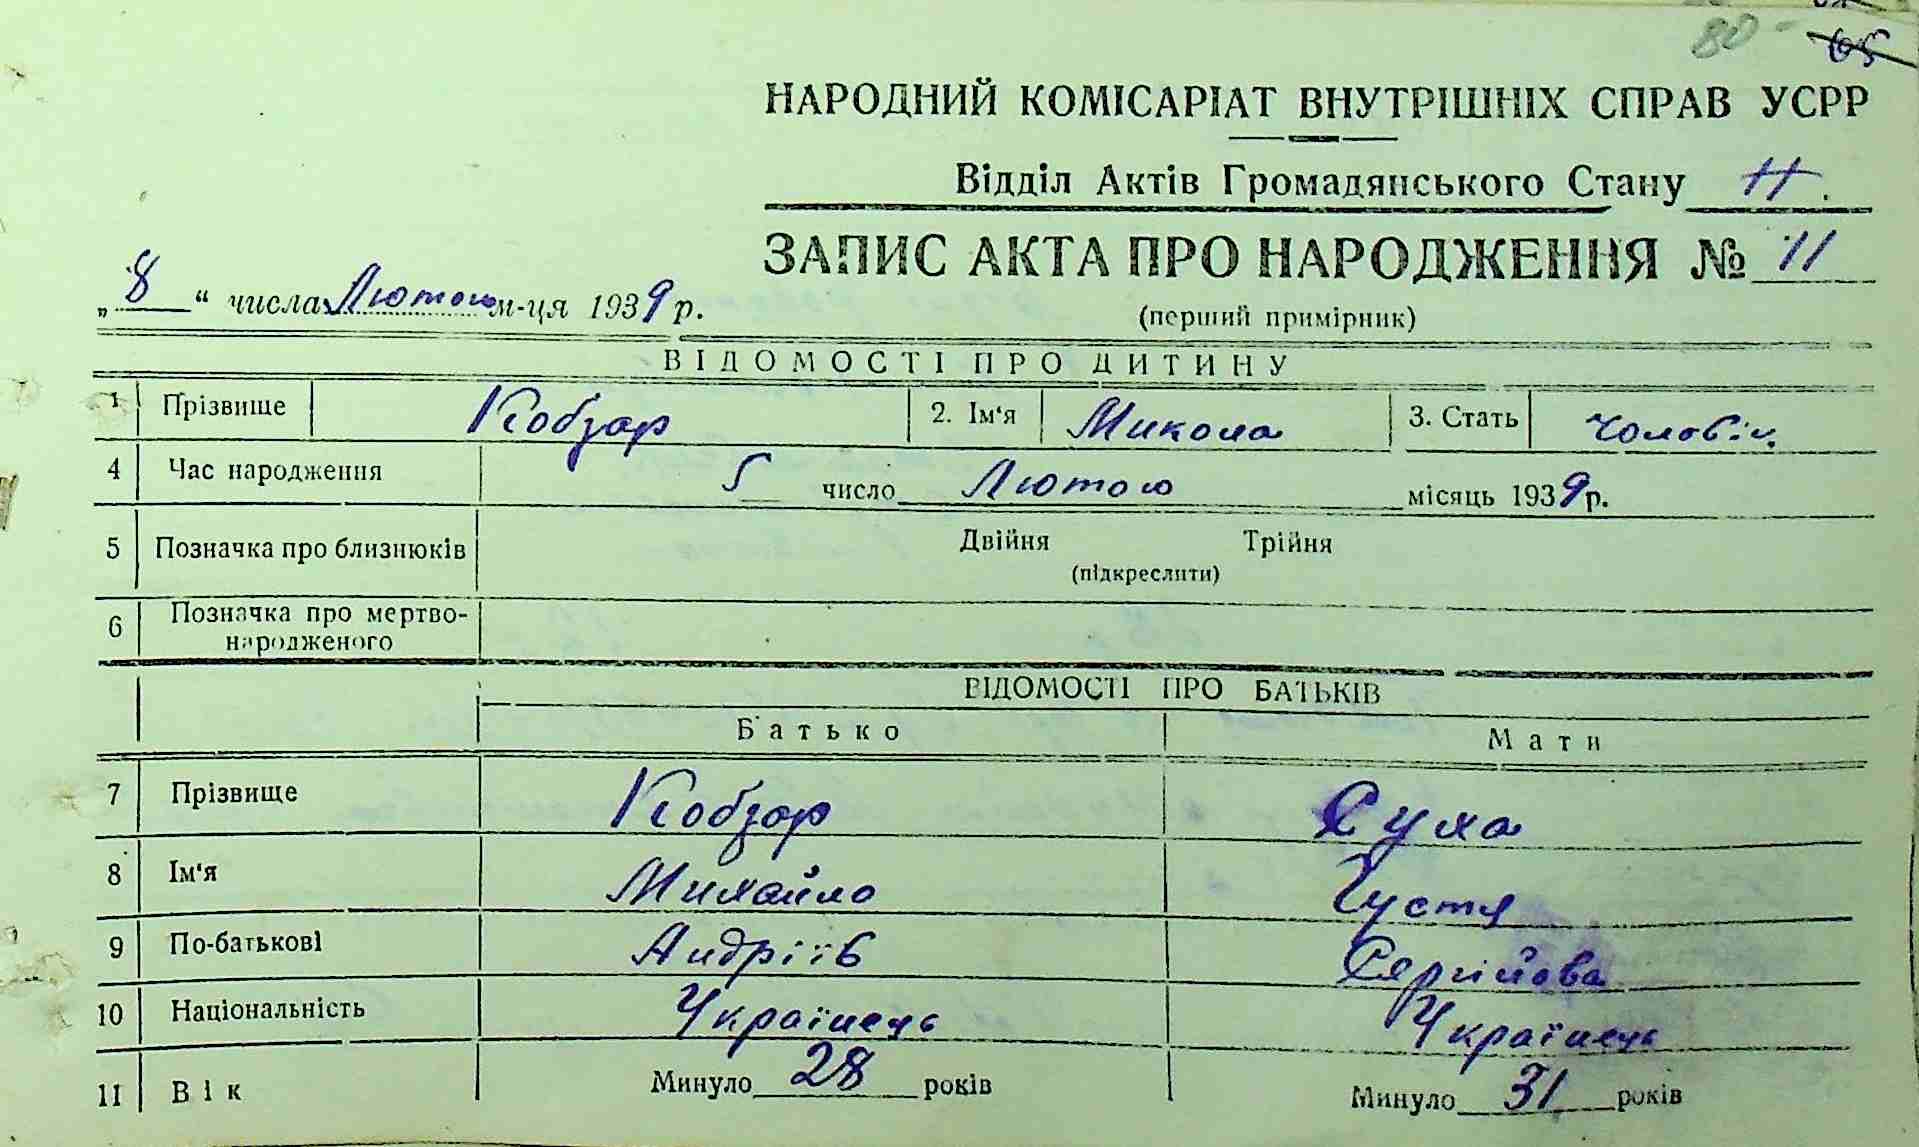 80 -
65
НАРОДНИЙ КОМІСАРІАТ ВНУТРІШНІХ СПРАВ УСРР
Відділ Актів Громадянського Стану
ЗАПИС АКТА ПРО НАРОДЖЕННЯ № 11
„8“ числа Лютого м-ця 1939 р.
(перший примірник)
ВІДОМОСТІ ПРО ДИТИНУ
1 Прізвище Кобзар 2. Ім‘я Микола 3. Стать Чоловіч.
4 Час народження 5 число Лютого місяць 1939 р.
5 Позначка про близнюків Двійня Трійня
(підкреслити)
6 Позначка про мертво-
народженого
ВІДОМОСТІ ПРО БАТЬКІВ
Батько Мати
7 Прізвище Кобзар Суха
8 Ім‘я Михайло Густя
9 По-батькові Андріїв Сергійова
10 Національність Українець Українець
11 Вік Минуло 28 років Минуло 31 років